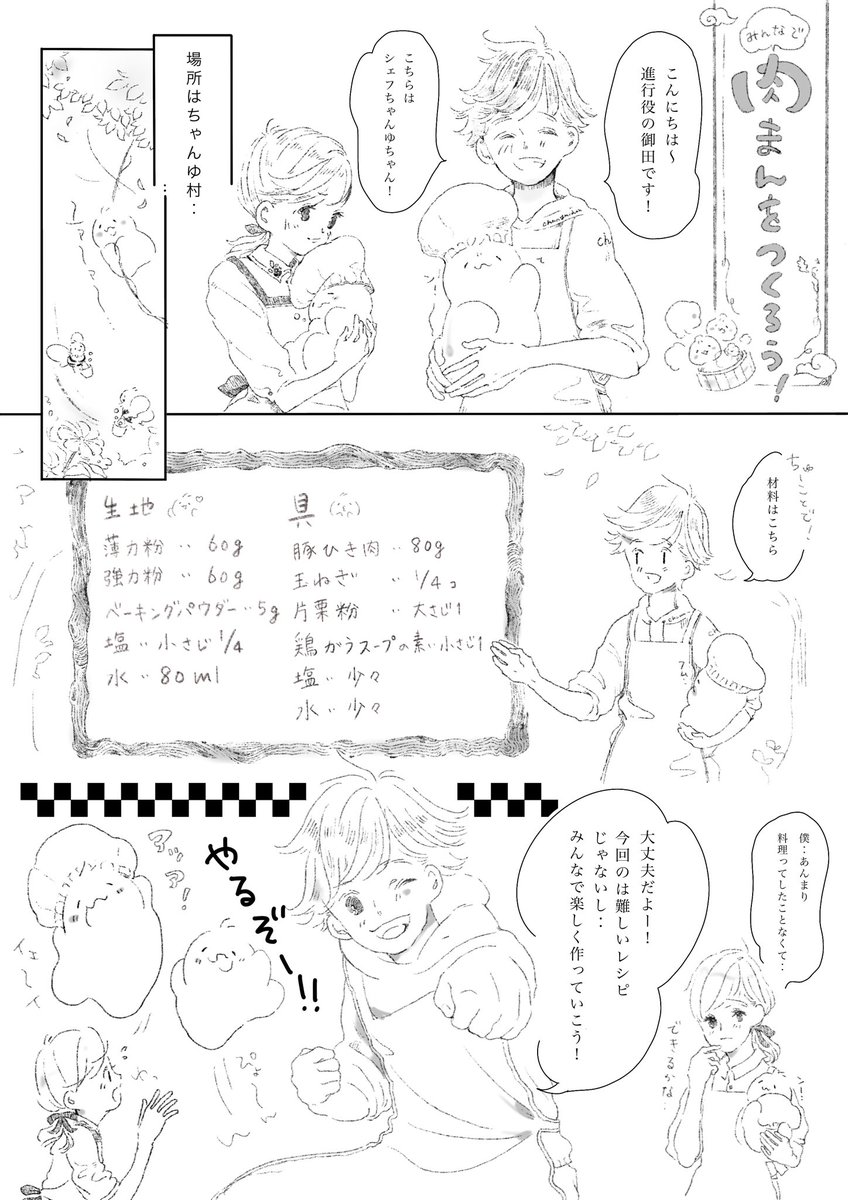 みんなで
肉まんをつくろう！
こんにちは〜
進行役の御田です！
こちらは
シェフちゃんゆちゃん！
場所はちゃんゆ村‥
ちゅーことで！
材料はこちら
生地
薄力粉‥60g
強力粉‥60g
ベーキングパウダー‥5g
塩‥小さじ1/4
水‥80ml
具
豚ひき肉‥80g
玉ねぎ‥1/4コ
片栗粉‥大さじ1
鶏がらスープの素‥小さじ1
塩‥少々
水‥少々
僕‥あんまり
料理ってしたことなくて‥
できるかな‥
ンー‥
大丈夫だよー！
今回のは難しいレシピ
じゃないし‥
みんなで楽しく作っていこう！
やるぞー!!
アッア！
イェーイ
ぴょ